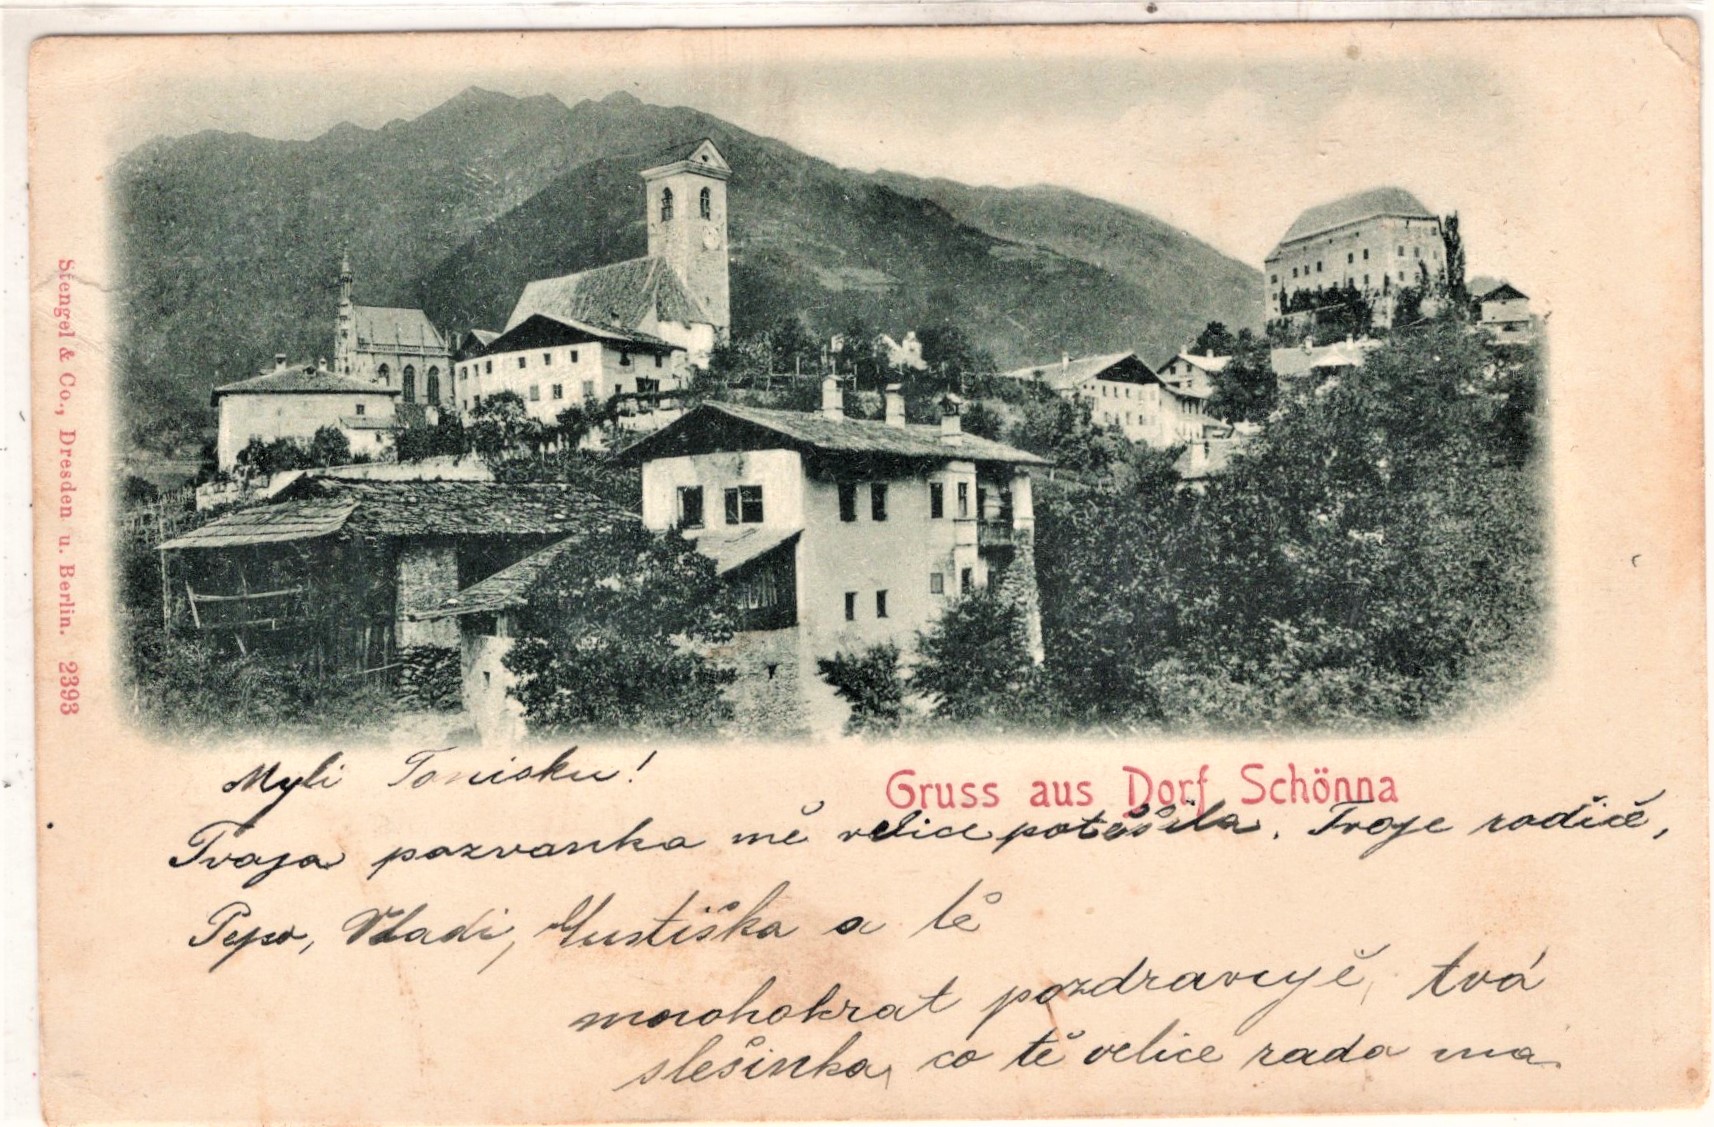 Stengel & Co., Dresden u. Berlin. 2393
Gruss aus Dorf Schönna
Myli Tonisku!
Tvoja pozvanka mě velice potěšila. Tvoje rodičě,
Pepo, Vladi, Gustiška a tě
mnohokrat pozdravujě, tvá
slešinka, co tě velice rada ma